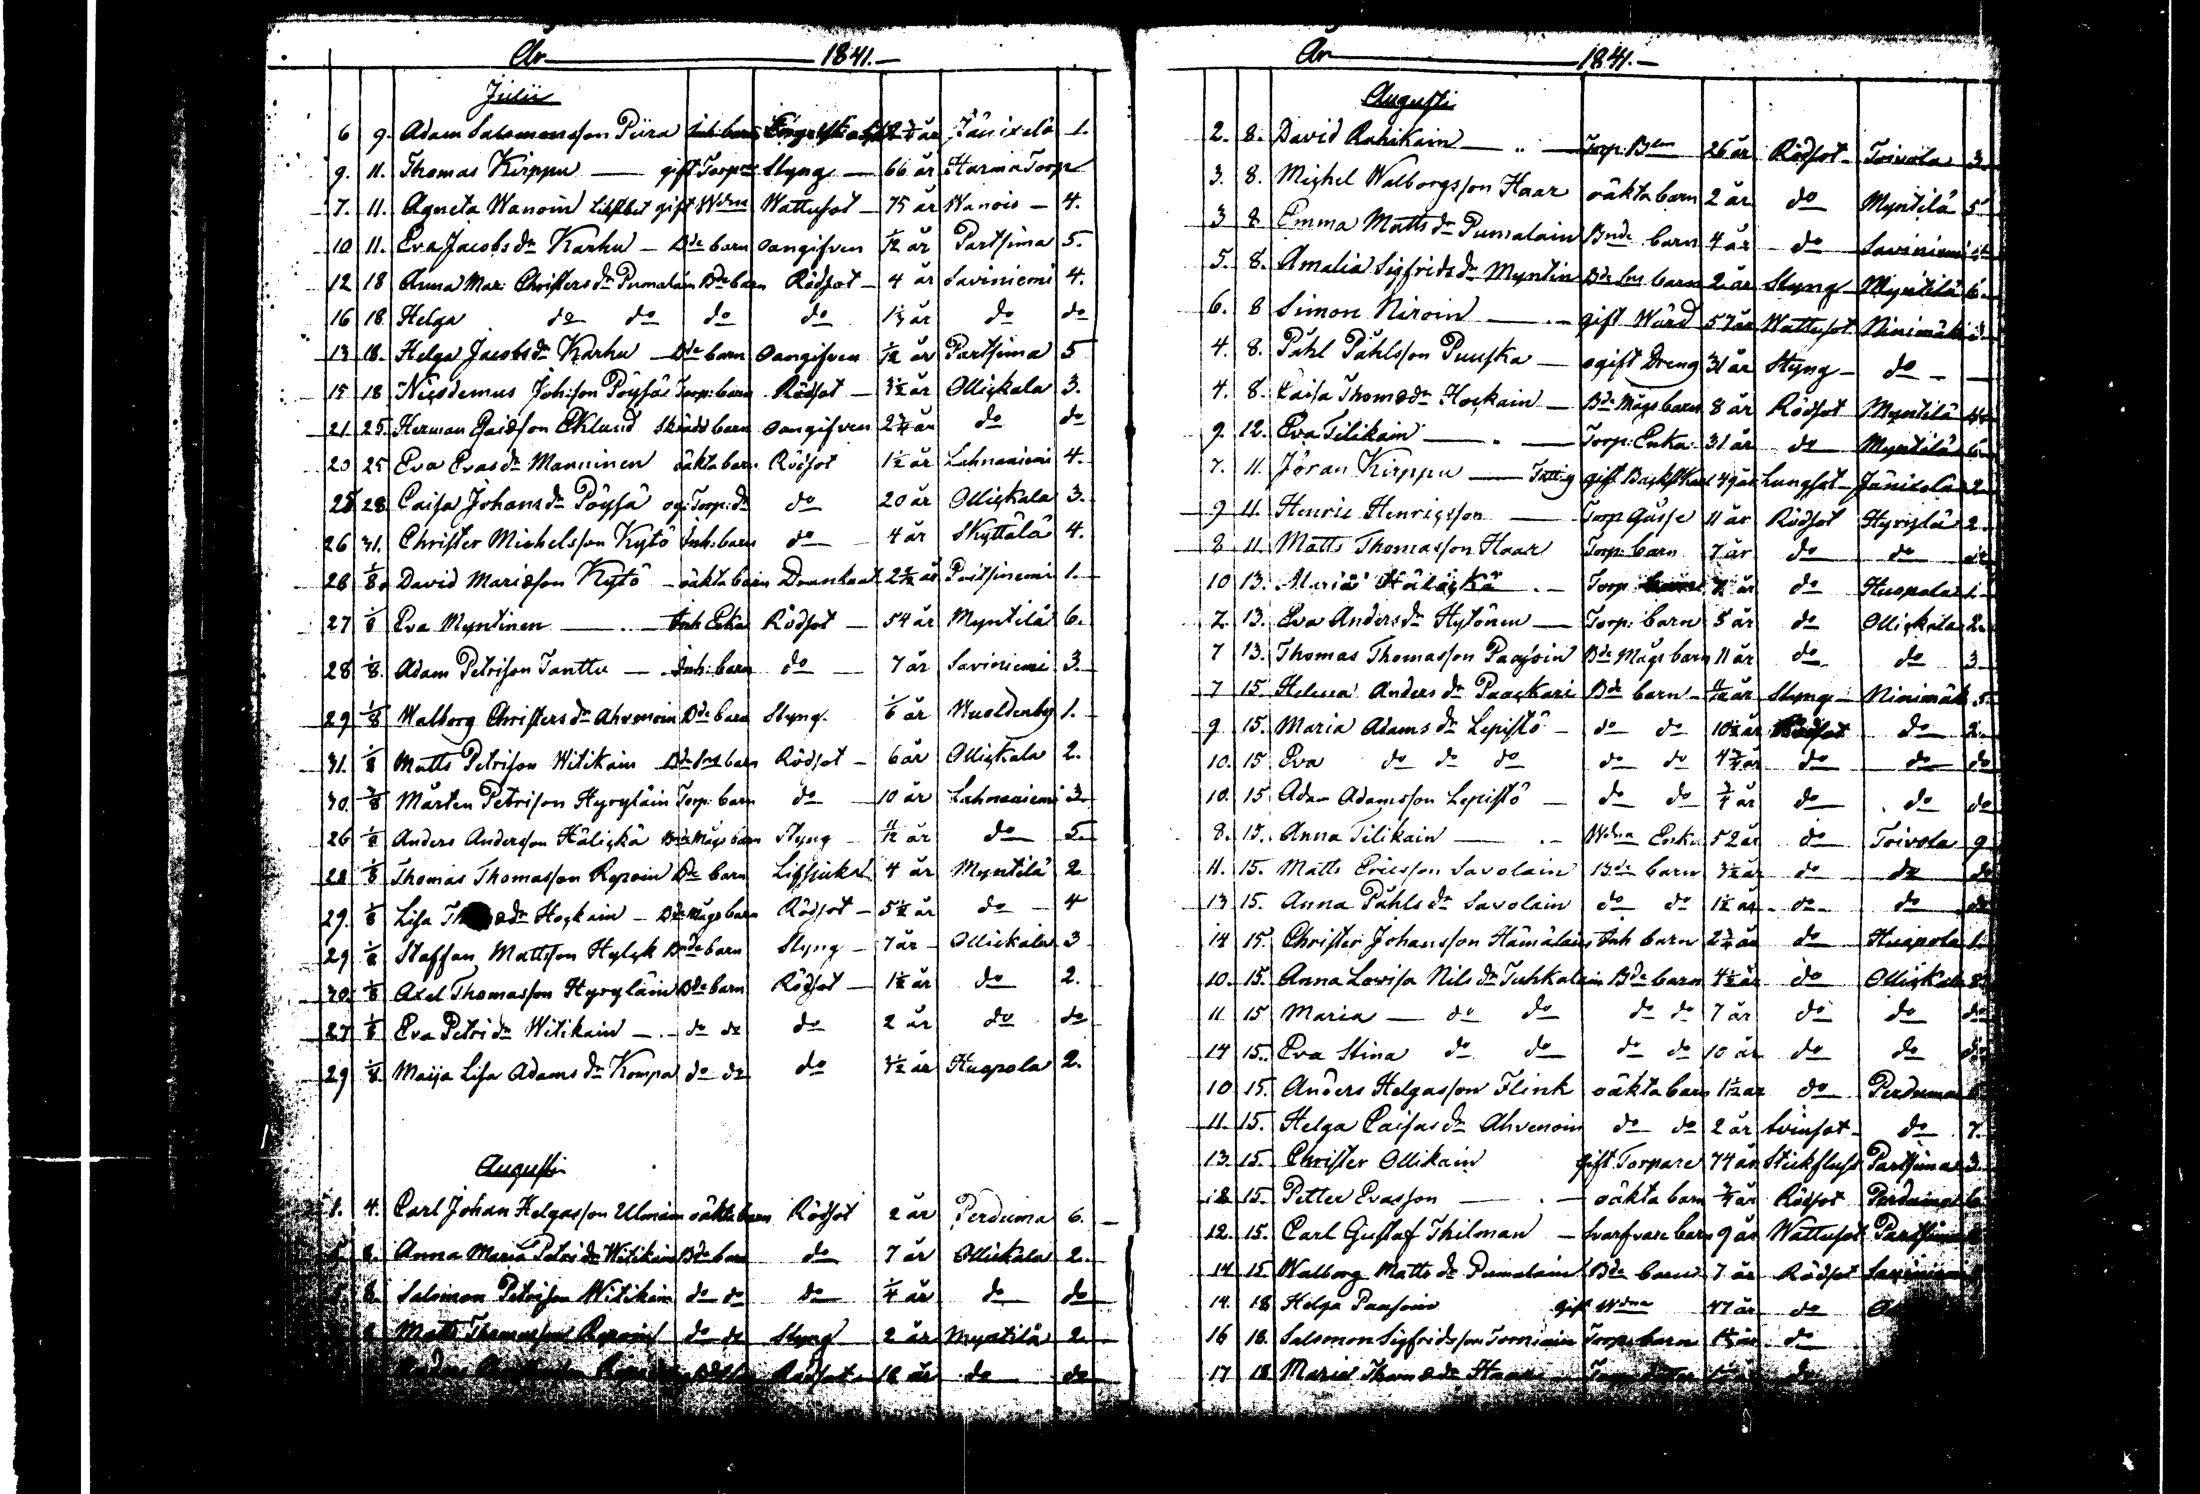 År 1841.
Julii
6 9. Adam Salomonsson Piira Inh: barn år Jänixelä 1.
9. 11. Thomas Kirppu gift Torpare Styng 66 år Harma Torp
7. 11. Agneta Wanoin gift Wdna Wattusot 75 år Wanois 4.
10 11. Eva Jacobs dr Karhu Bde barn oangifven 1/12 år Partsima 5.
12 18 Anna Mar: Christers dr Pumalain Bde barn Rödsot 4 år Saviniemi 4.
16 18. Helga do do do do 1 1/3 år do do
13 18. Helga Jacobs dr Karhu Bde barn oangifven 1/12 år Partsima 5
15 18 Nicodemus Joh:sson Pöysä Torp: barn Rödsot 3 1/2 år Ollickala 3.
21. 25. Herman Eklund barn oangifven 2 3/4 år do do
23 25 Eva Evas dr Manninen oäkta barn Rödsot 1 1/2 år Lahnaniemi 4.
25 28. Caisa Johans dr Pöysä og: Torp: dr do 20 år Ollickala 3.
26 31. Christer Michelsson Kytö Inh: barn do 4 år Skyttälä 4.
26 1/8. David Mariæson Kytö oäkta barn år Poitsiniemi 1.
27 1/8 Eva Myntinen Inh Enka Rödsot 54 år Myntilä 6.
28 1/8. Adam Petrisson Tanttu Inh: barn do 7 år Saviniemi 3.
29 1/8 Walborg Christers dr Ahvenoin Bde barn Styng. 1/6 år 1.
31. 1/8 Matts Petrisson Witikain barn Rödsot 6 år Ollickala 2.
30. 3/8 Mårten Petrisson Hyryläin Torp: barn do 10 år Lahnaniemi 3.
26 1/8 Anders Andersson Häläckä Bnde Mågs barn Styng 11/12 år do 5.
28 1/8 Thomas Thomasson Reponin Bde barn 4 år Myntilä 2
29. 1/8 Lisa dr Hockain Bde Mågs barn Rödsot 5 1/2 år do 4
29 1/8 Staffan Mattsson Hylyk Bnde barn Styng 7 år Ollickala 3
30. 1/8 Axel Thomasson Hyryläin Bde barn Rödsot 1 1/2 år do 2.
27 1/8 Eva Petri dr Witikain do do do 2 år do do
29 1/8. Maija Lisa Adams dr Kompa do do do år Huopola 2.
Augusti
1. 4. Carl Johan Helgasson Ulmain oäkta barn Rödsot 2 år Perduma 6.
8. Anna Maria Petri dr Witikain Bde barn do 7 år Ollickala 2.
8. Salomon Petrisson Witikain do do do 1/4 år do do
8 Matts Thomasson Reponin do do Styng 2 år Myntilä 2.
Rödsot år do do
År 1841.
Augusti
2. 8. David Rahikain Torp: 26 år Rödsot Toivola 3
3. 8. Michel Walborgsson Haar oäkta barn 2 år do Myntilä 5
3 8 Emma Matts dr Pumalain Bnde barn 4 år do Saviniemi
5. 8. Amalia Sigfrids dr Myntin barn 2 år Styng Myntilä 6.
6. 8 Simon Niroin gift Wärd 57 år Wattusot Ninimäki
4. 8. Påhl Påhlsson Puuska ogift Dreng 31 år Styng do
4. 8. Caisa Thomæ dr Hockain Bde Mågs barn 8 år Rödsot Myntilä
9. 12. Eva Tilikain Torp: Enka 31 år do Myntilä 6
7. 11. Jöran Kirppu gift 49 år Lungsot Jänixelä 2
9 11. Henric Henricsson Torp Gosse 11 år Rödsot Hyrylä 2.
8 11 Matts Thomasson Haar Torp: barn 7 år do do do
10 13. Maria Häläckä Torp år do Huopola 1.
7. 13. Eva Anders dr Hytönen Torp: barn 5 år do Ollickala 2.
7 13. Thomas Thomasson Paajoin Bde Mågs barn 11 år do do 3
7 15 Helena Anders dr Paackari Bde barn 11/12 år Styng Ninimäk 5.
9 15. Maria Adams dr Lepistö do do 10 1/2 år Rödsot do 2.
10. 15 Eva do do do do do 4 3/4 år do do do
10. 15 Adam Adamsson Lepistö do do 3/4 år do do do
8. 15. Anna Tilikain Wdna Enka 52 år do Toivola 9
11. 15. Matts Ericsson Savolain Bde barn 3 1/2 år do do do
13 15. Anna Påhls dr Savolain do do 1 1/2 år do do do
14 15. Christer Johansson Hämäläin Inh barn 2 3/4 år do Huopola 1.
10. 15. Anna Lovisa Nils dr Tuhkalain Bde barn 4 1/2 år do Ollickala 8
11 15 Maria do do do do 7 år do do do
14 15. Eva Stina do do do do 10 år do do do
10 15. Anders Helgasson Flink oäkta barn år do Perduma 6
11. 15. Helga Caisas dr Ahvenoin do do 2 år do 7.
13. 15. Christer Ollikain gift Torpare 74 år Stickfluss Partsima 3.
12 15. Petter Evasson oäkta barn 3/4 år Rödsot 6
12. 15. Carl Gustaf Thilman barn 9 år Wattusot Partsima
14 15. Walborg Matts dr Pumalain Bde barn 7 år Rödsot Saviniemi
14. 18 Helga Paasoin gift Wdna 47 år do
16 18. Salomon Sigfridsson Torniain Torp: barn år do
17 18 Maria Thomæ dr Haar do